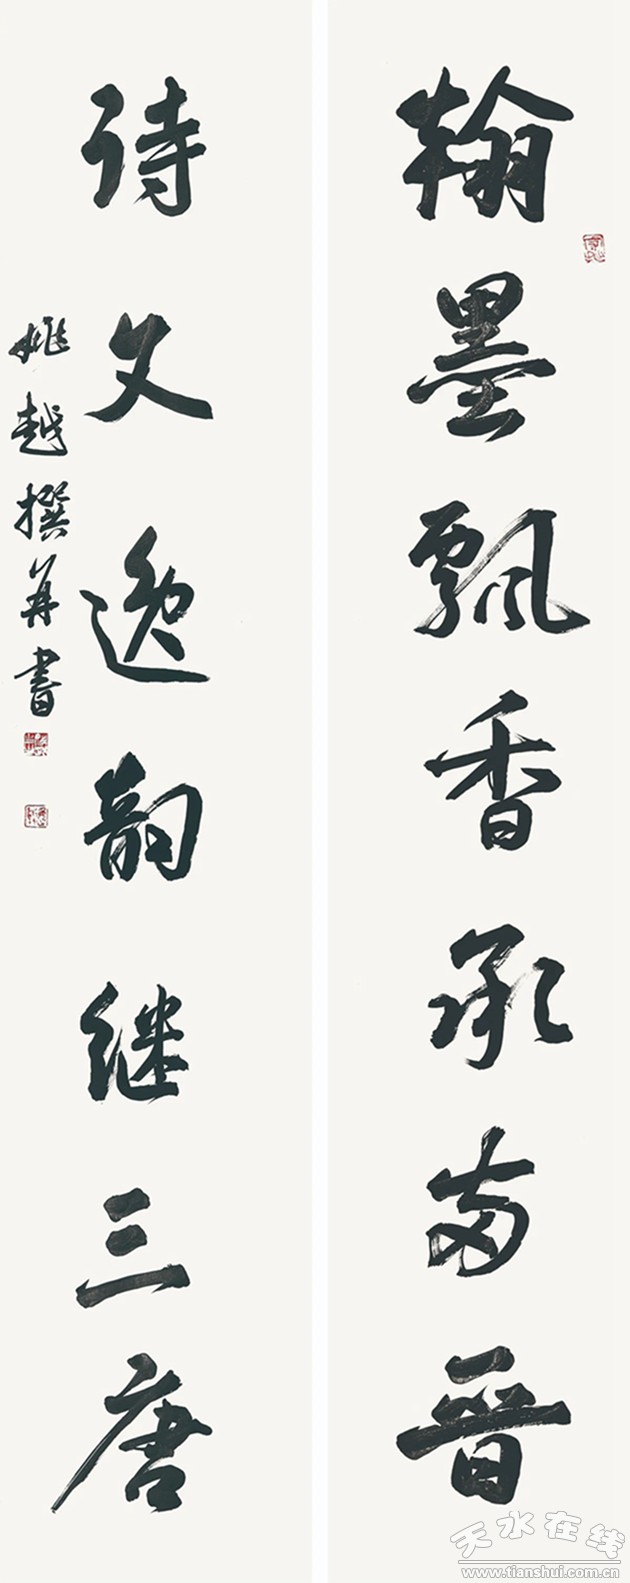 翰墨飘香承两晋
诗文逸韵继三唐
姚越撰并书
天水在线
www.tianshui.com.cn